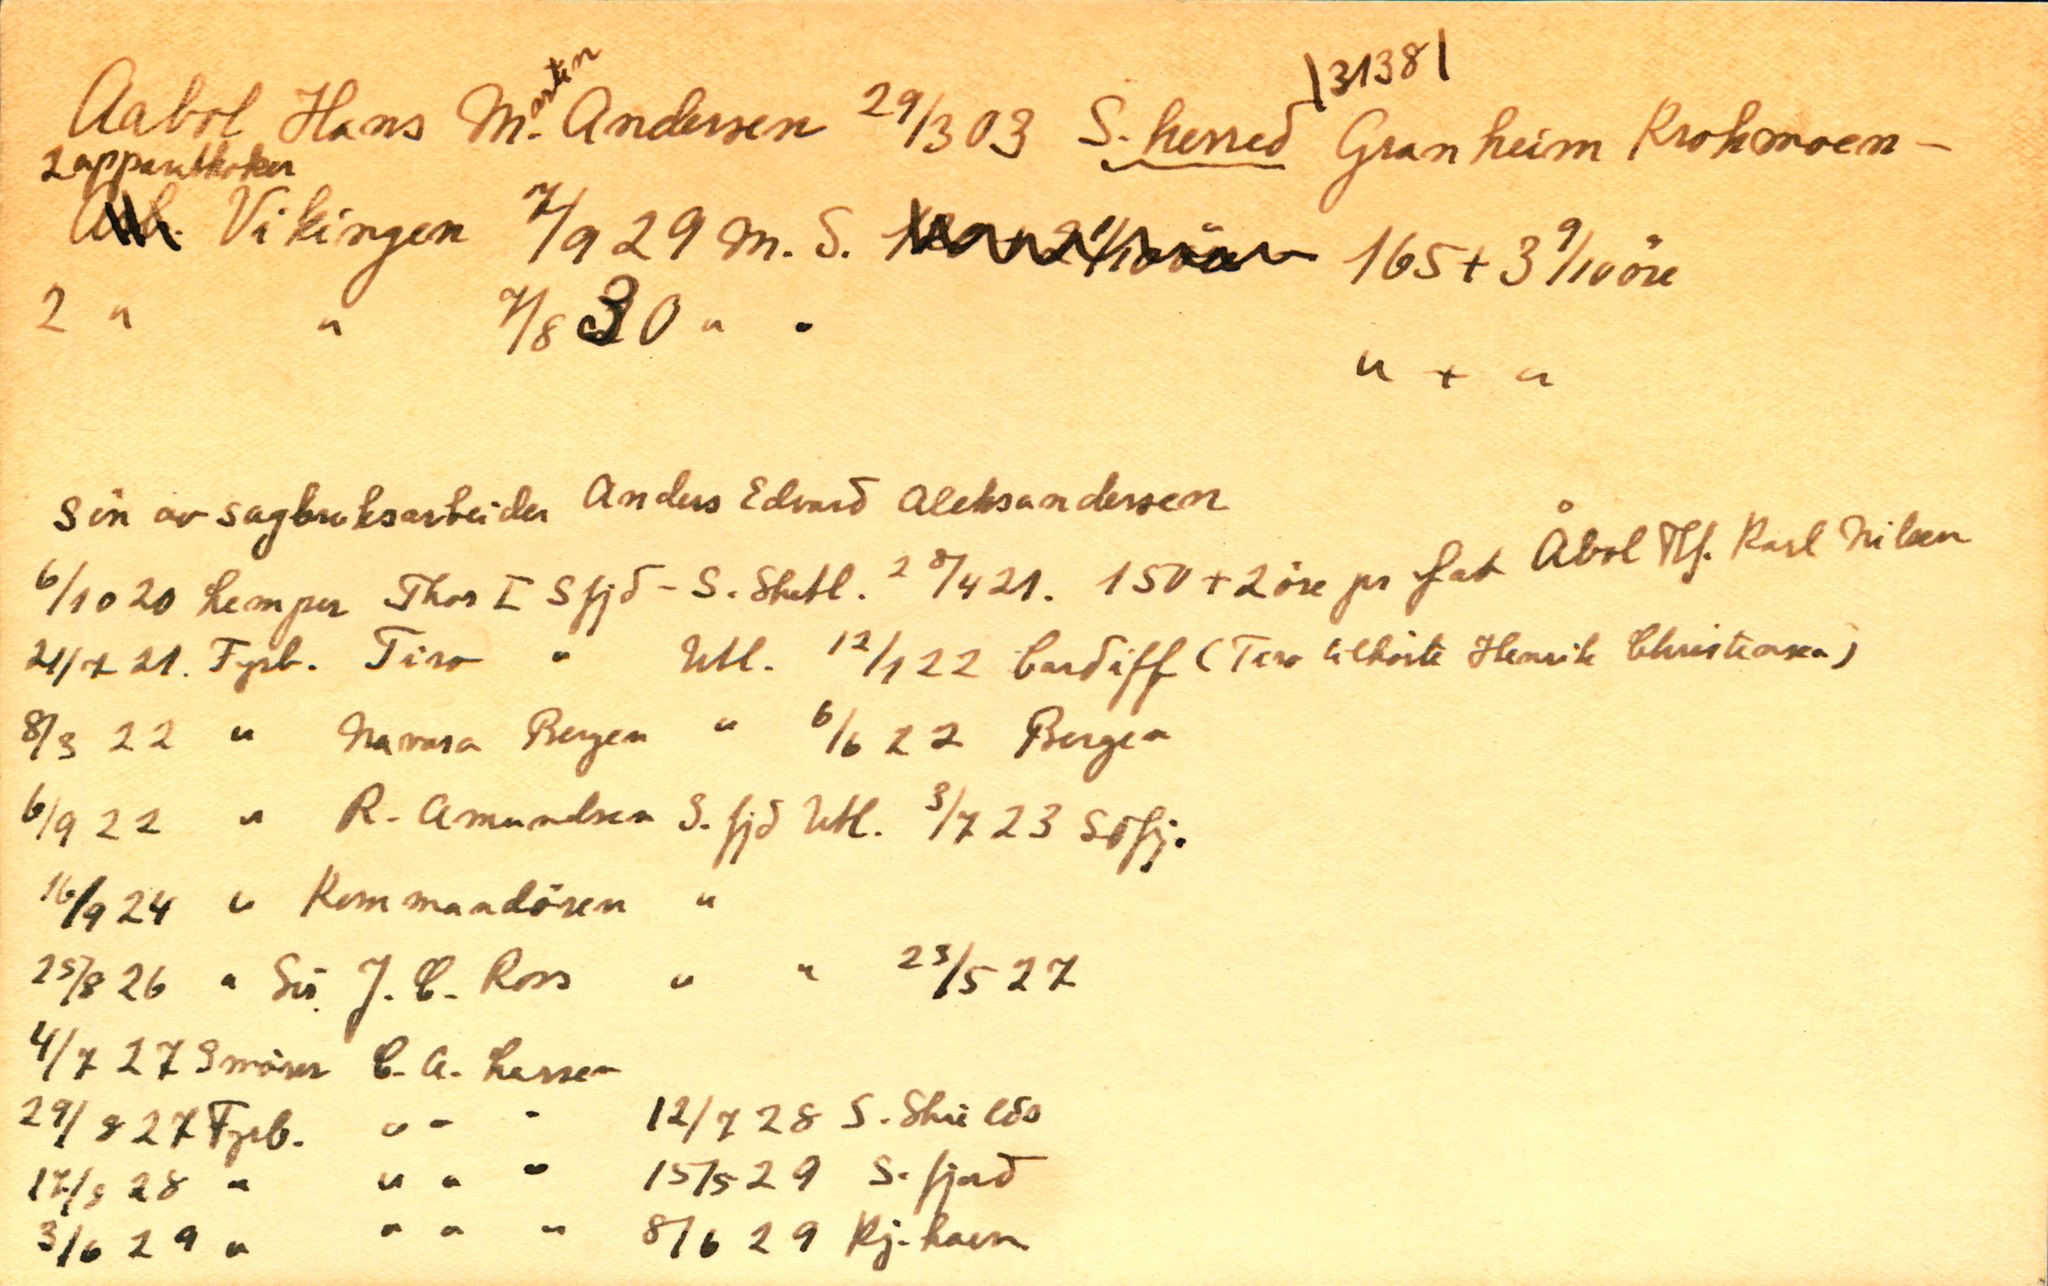 Aabol Hans Martin Andersen 29/3 03 S. herred 31381 Granheim Krokmoen -
2 apparatkoker
Vikingen 7/9 29 M. S. 165 + 3 9/10 öre
2 " " 7/8 30 " "
" + "
Sön av sagbruksarbeider Anders Edvard Aleksandersen
6/10 20 Lemper Thor I Sfjd - S. Shetl. 28/4 21. 150 + 2 öre pr fat Åbol Tlf. Karl Nilsen
21/7 21. Fyrb. Tiro " Utl. 12/1 22 Cardiff (Tiro tilhörte Henrik Christensen)
8/3 22 " Navara Bergen " 6/6 22 Bergen
6/9 22 " R. Amundsen S. fjd Utl. 3/7 23 Sdfj.
16/9 24 " Kommandören "
25/8 26 " Sir J. C. Ross " " 23/5 27
4/7 27 Smörer C. A. Larsen
29/8 27 Fyrb. " " " 12/7 28 S. Shields
17/8 28 " " " " 15/5 29 S. fjord
3/6 29 " " " " 8/6 29 Kj. havn